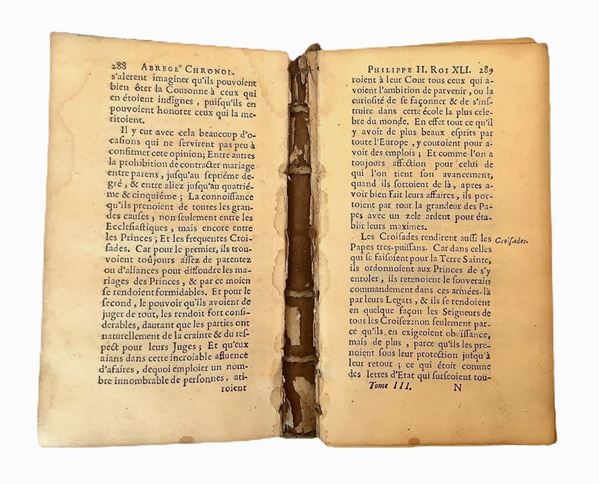 288 ABREGE' CHRONOL.
s'alerent imaginer qu'ils pouvoient
bien ôter la Couronne à ceux qui
en étoient indignes, puisqu'ils en
pouvoient honorer ceux qui la me-
ritoient.
Il y eut avec cela beaucoup d'oc-
casions qui ne servirent pas peu à
confirmer cette opinion; Entre autres
la prohibition de contracter mariage
entre parens, jusqu'au septiéme de-
gré, & entre aliez jusqu'au quatrié-
me & cinquiéme; La connoissance
qu'ils prenoient de toutes les gran-
des causes, non seulement entre les
Ecclesiastiques, mais encore entre
les Princes; Et les frequentes Croi-
sades. Car pour le premier, ils trou-
voient toûjours assez de parentez
ou d'alliances pour dissoudre les ma-
riages des Princes, & par ce moien
se rendoient formidables. Et pour le
second, le pouvoir qu'ils avoient de
juger de tout, les rendoit fort consi-
derables, dautant que les parties ont
naturellement de la crainte & du res-
pect pour leurs Juges; Et qu'eux
aians dans cette incroiable affluence
d'afaires, dequoi emploier un nom-
bre innombrable de personnes, ati-
roient
PHILIPPE II. ROI XLI. 289
roient à leur Cour tous ceux qui a-
voient l'ambition de parvenir, ou la
curiosité de se façonner & de s'ins-
truire dans cette école la plus cele-
bre du monde. En effet tout ce qu'il
y avoit de plus beaux esprits par
toute l'Europe, y couroient pour a-
voir des emplois; Et comme l'on a
toujours affection pour celui de
qui l'on tient son avancement,
quand ils sortoient de là, apres a-
voir bien fait leurs affaires, ils por-
toient par tout la grandeur des Pa-
pes avec un zele ardent pour éta-
blir leurs maximes.
Les Croisades rendirent aussi les
Croisades.
Papes tres-puissans. Car dans celles
qui se faisoient pour la Terre Sainte,
ils ordonnoient aux Princes de s'y
enroler, ils retenoient le souverain
commandement dans ces armées-là
par leurs Legats, & ils se rendoient
en quelque façon les Seigneurs de
tous les Croisez: non seulement par-
ce qu'ils en exigeoient obéissance,
mais de plus, parce qu'ils les pre-
noient sous leur protection jusqu'à
leur retour; ce qui étoit comme
des lettres d'Etat qui surseoient tou-
Tome III. N